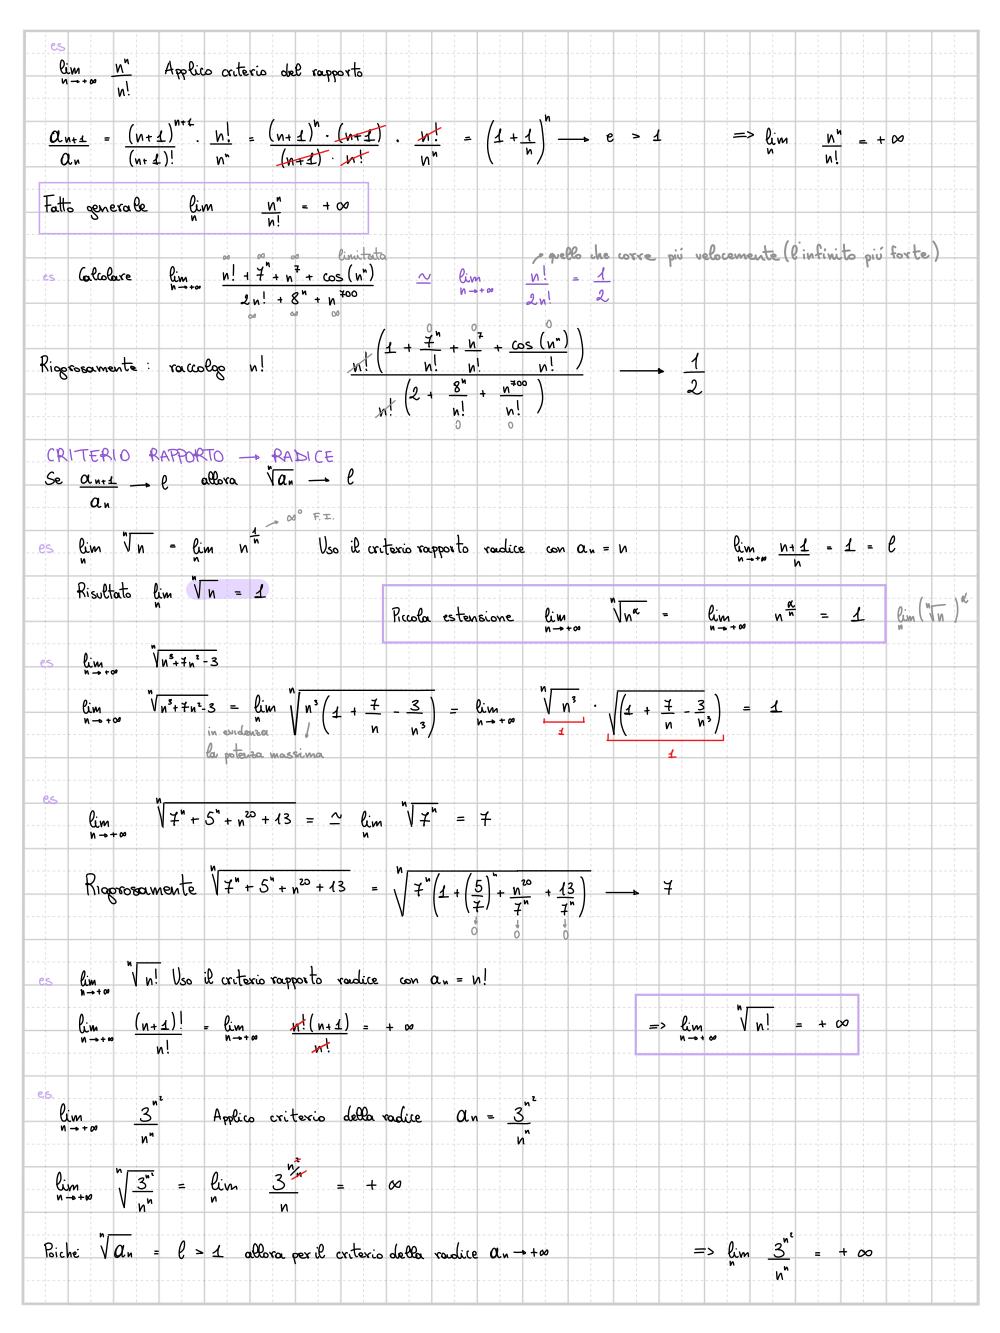 es
lim n→+∞ nⁿ/n! Applico criterio del rapporto
aₙ₊₁/aₙ = (n+1)ⁿ⁺¹/(n+1)! · n!/nⁿ = (n+1)ⁿ·(n+1)/(n+1)·n! · n!/nⁿ = (1 + 1/n)ⁿ → e > 1 => lim n nⁿ/n! = +∞
Fatto generale lim n nⁿ/n! = +∞
→ quello che corre piú velocemente (l'infinito piú forte)
∞ ∞ ∞ limitata
es Calcolare lim n→+∞ (n! + 7ⁿ + n⁷ + cos(nⁿ))/(2n! + 8ⁿ + n⁷⁰⁰) ≃ lim n→+∞ n!/2n! = 1/2
∞ ∞ ∞
0 0 0
Rigorosamente : raccolgo n! n!(1 + 7ⁿ/n! + n⁷/n! + cos(nⁿ)/n!)/n!(2 + 8ⁿ/n! + n⁷⁰⁰/n!) → 1/2
0 0
CRITERIO RAPPORTO → RADICE
Se aₙ₊₁/aₙ → l allora ⁿ√aₙ → l
→ ∞⁰ F.I.
es lim n ⁿ√n = lim n n^(1/n) Uso il criterio rapporto radice con aₙ = n lim n→+∞ (n+1)/n = 1 = l
Risultato lim n ⁿ√n = 1
Piccola estensione lim n→+∞ ⁿ√(n^α) = lim n→+∞ n^(α/n) = 1 lim n (ⁿ√n)^α
es lim n→+∞ ⁿ√(n³+7n²-3)
lim n→+∞ ⁿ√(n³+7n²-3) = lim n ⁿ√(n³(1 + 7/n - 3/n³)) = lim n→+∞ ⁿ√n³ · √(1 + 7/n - 3/n³) = 1
in evidenza 1
la potenza massima 1
es
lim n→+∞ ⁿ√(7ⁿ + 5ⁿ + n²⁰ + 13) = ≃ lim n ⁿ√7ⁿ = 7
Rigorosamente ⁿ√(7ⁿ + 5ⁿ + n²⁰ + 13) = ⁿ√(7ⁿ(1 + (5/7)ⁿ + n²⁰/7ⁿ + 13/7ⁿ)) → 7
0 0 0
es lim n→+∞ ⁿ√n! Uso il criterio rapporto radice con aₙ = n!
lim n→+∞ (n+1)!/n! = lim n→+∞ n!(n+1)/n! = +∞ => lim n→+∞ ⁿ√n! = +∞
es
lim n→+∞ 3^(n²)/nⁿ Applico criterio della radice aₙ = 3^(n²)/nⁿ
lim n→+∞ ⁿ√(3^(n²)/nⁿ) = lim n 3^(n²/n)/n = +∞
Poiché ⁿ√aₙ = l > 1 allora per il criterio della radice aₙ → +∞ => lim n 3^(n²)/nⁿ = +∞